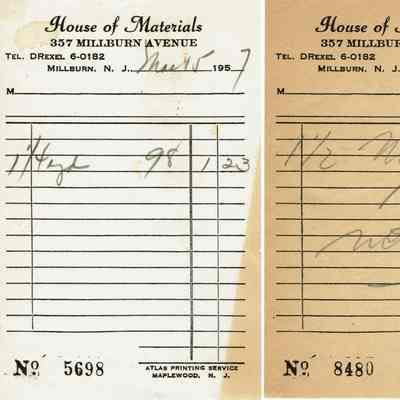 House of Materials
357 MILLBURN AVENUE
TEL. DREXEL 6-0182
MILLBURN, N. J., Mar 15 1957
M
1 1/4 yd 98 1 23
No 5698
ATLAS PRINTING SERVICE
MAPLEWOOD, N. J.
House of
357 MILLBUR
TEL. DREXEL 6-0182
MILLBURN, N. J.
M
1 1/2
No 8480